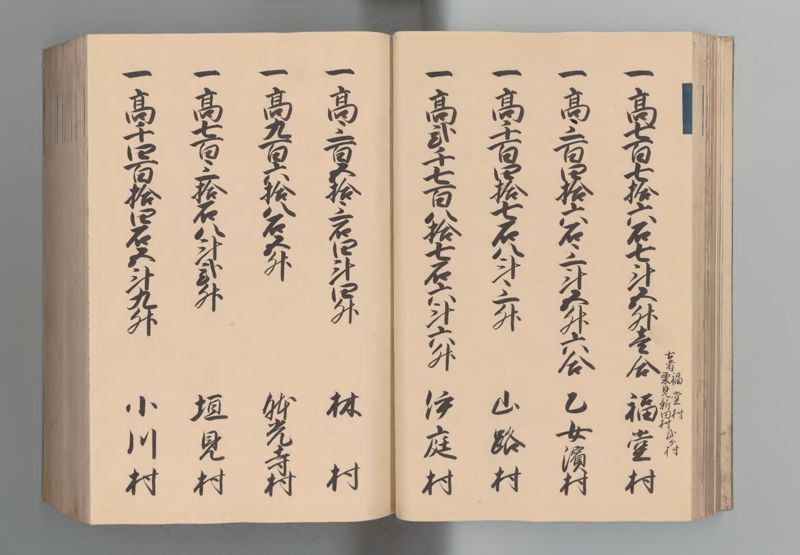 一高七百七拾六石七斗五升壱合 福堂村
古者 福堂村
栗見新田村 弐ケ村
一高三百四拾六石三斗五升六合 乙女濱村
一高千百四拾七石八斗三升 山路村
一高弐千七百八拾七石六斗六升 伊庭村
一高三百五拾三石四斗四升 林村
一高九百六拾八石五升 躰光寺村
一高七百三拾石八斗弐升 垣見村
一高千四百拾四石五斗九升 小川村